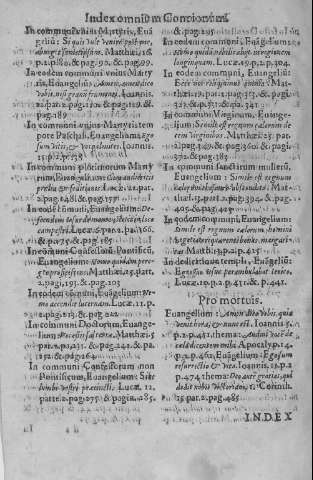 Index omnium Concionum.
In communi vnius Martyris, Euã
geliũ: Si quis vult venire post me,
abneget semetipsum. Matthæi, 16
p. 2. p. 80. & pag. 90. & pag. 99.
In eodem communi vnius Marty
ris, Euangelium: Amen, amen dico
vobis, nisi granũ frumenti. Ioannis.
pag. 189
In communi vnius Martyris tem
pore Paschali, Euangelium: Ego
sum vitis, & vos palmites. Ioannis.
15. p. 2. p. 138
In communi plurimorum Marty
rum, Euangelium: Cum audieritis
prælia & seditiones. Lucæ. 21. par.
2. pag. 148. & pag. 157
In eodem communi, Euangelium: De-
scendens Iesus de monte, stetit in loco
campestri. Lucæ. 6. par. 2. pag. 166
& p. 175. & pag. 185
In communi Confessorũ Pontificũ,
Euangelium: Homo quidam pere
gre proficiscens. Matthæi, 25. part.
2. pag. 193. & pag. 203
In eodem communi, Euãgelium: Ne
mo accendit lucernam. Lucæ. 11. p.
2. pa. 213. & pag. 222
In communi Doctorum, Euange-
lium: Vos estis sal terræ. Matthæi, 5
par. 2. pa. 231. & pag. 242. & pa.
252. & pag. 264
In communi Confessorum non
Pontificum, Euangelium: Sint
lumbi vestri præcincti. Lucæ. 12.
parte. 2. pag. 275. & pagin. 285.
& pag. 295
In eodem communi, Euãgelium:
Homo quidam nobilis abijt in regionem
longinquam. Lucæ. 19. p. 2. p. 304.
In eodem communi, Euangeliũ:
Ecce nos reliquimus omnia. Mat-
thæi. 19. par. 2. pag. 315. & pagi.
328. & p. 335. & pa. 341
In communi Virginum, Euange
lium: Simile est regnum cælorum de
cem virginibus. Matthæi. 25. par.
2. pag. 349. & pag. 361. & pagi.
372. & pag. 383
In communi sanctarum mulierũ,
Euangelium: Simile est regnum
cælorum thesauro abscondito. Mat-
thæi. 13. part. 2. pag. 394. & pag.
405. & pag. 415
In eodem communi, Euangelium:
Simile est regnum cælorum homini
negotiatori quærenti bonas margari-
tas. Matth. 13. p. 2. p. 425
In dedicatione templi, Euãgeliũ:
Egressus Iesus perambulabat Iericho.
Lucæ. 19. p. 2. p. 431. & p. 441.
Pro mortuis.
Euangelium: Amen dico vobis, quia
venit hora, & nunc est. Ioannis. 5
p. 2. p. 451. thema: Audiui vocẽ de
cælo dicentem mihi. Apocaly. 14.
p. 2. p. 462. Euangelium: Ego sum
resurrectio & vita. Ioannis. 11. p. 2
p. 474. thema: Deo autẽ gratias, qui
dedit nobis victoriam. 1. Corinth.
15. par. 2. pag. 485.
INDEX